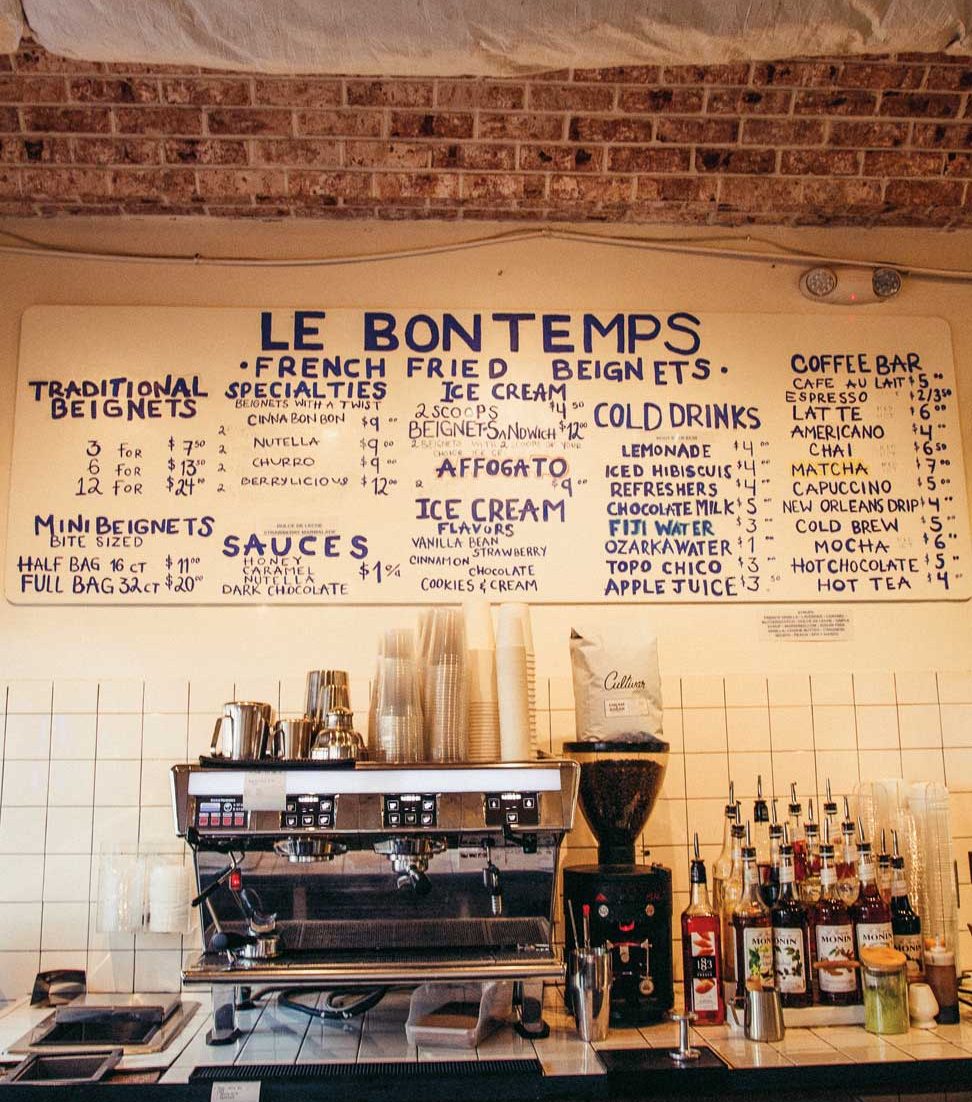 LE BONTEMPS
•FRENCH FRIED BEIGNETS•
TRADITIONAL
BEIGNETS
3 FOR $7.50
6 FOR $13.50
12 FOR $24.00
MINI BEIGNETS
BITE SIZED
HALF BAG 16 CT $11.00
FULL BAG 32CT $20.00
SPECIALTIES
BEIGNETS WITH A TWIST
2 CINNABONBON $9.00
2 NUTELLA $9.00
2 CHURRO $9.00
2 BERRYLICIOUS $12.00
SAUCES $1
HONEY
CARAMEL
NUTELLA
DARK CHOCOLATE
ICE CREAM
2 SCOOPS $4.50
BEIGNET SANDWICH $12.00
2 BEIGNETS WITH 2 SCOOPS OF YOUR
AFFOGATO
2 $9.00
ICE CREAM
FLAVORS
VANILLA BEAN
STRAWBERRY
CINNAMON
CHOCOLATE
COOKIES & CREAM
COLD DRINKS
LEMONADE $4.00
ICED HIBISCUIS $4.00
REFRESHERS $4.00
CHOCOLATE MILK $5
FIJI WATER $3
OZARKA WATER $1
TOPO CHICO $3
APPLE JUICE $3.50
COFFEE BAR
CAFE AU LAIT $5.00
ESPRESSO $2/3.50
LATTE $6.00
AMERICANO $4.00
CHAI $6.50
MATCHA $7.00
CAPUCCINO $5.00
NEW ORLEANS DRIP $4.00
COLD BREW $5
MOCHA $6
HOT CHOCOLATE $5
HOT TEA $4
Cultivar
1883
MONIN
MONIN
MONIN
MONIN
MONIN